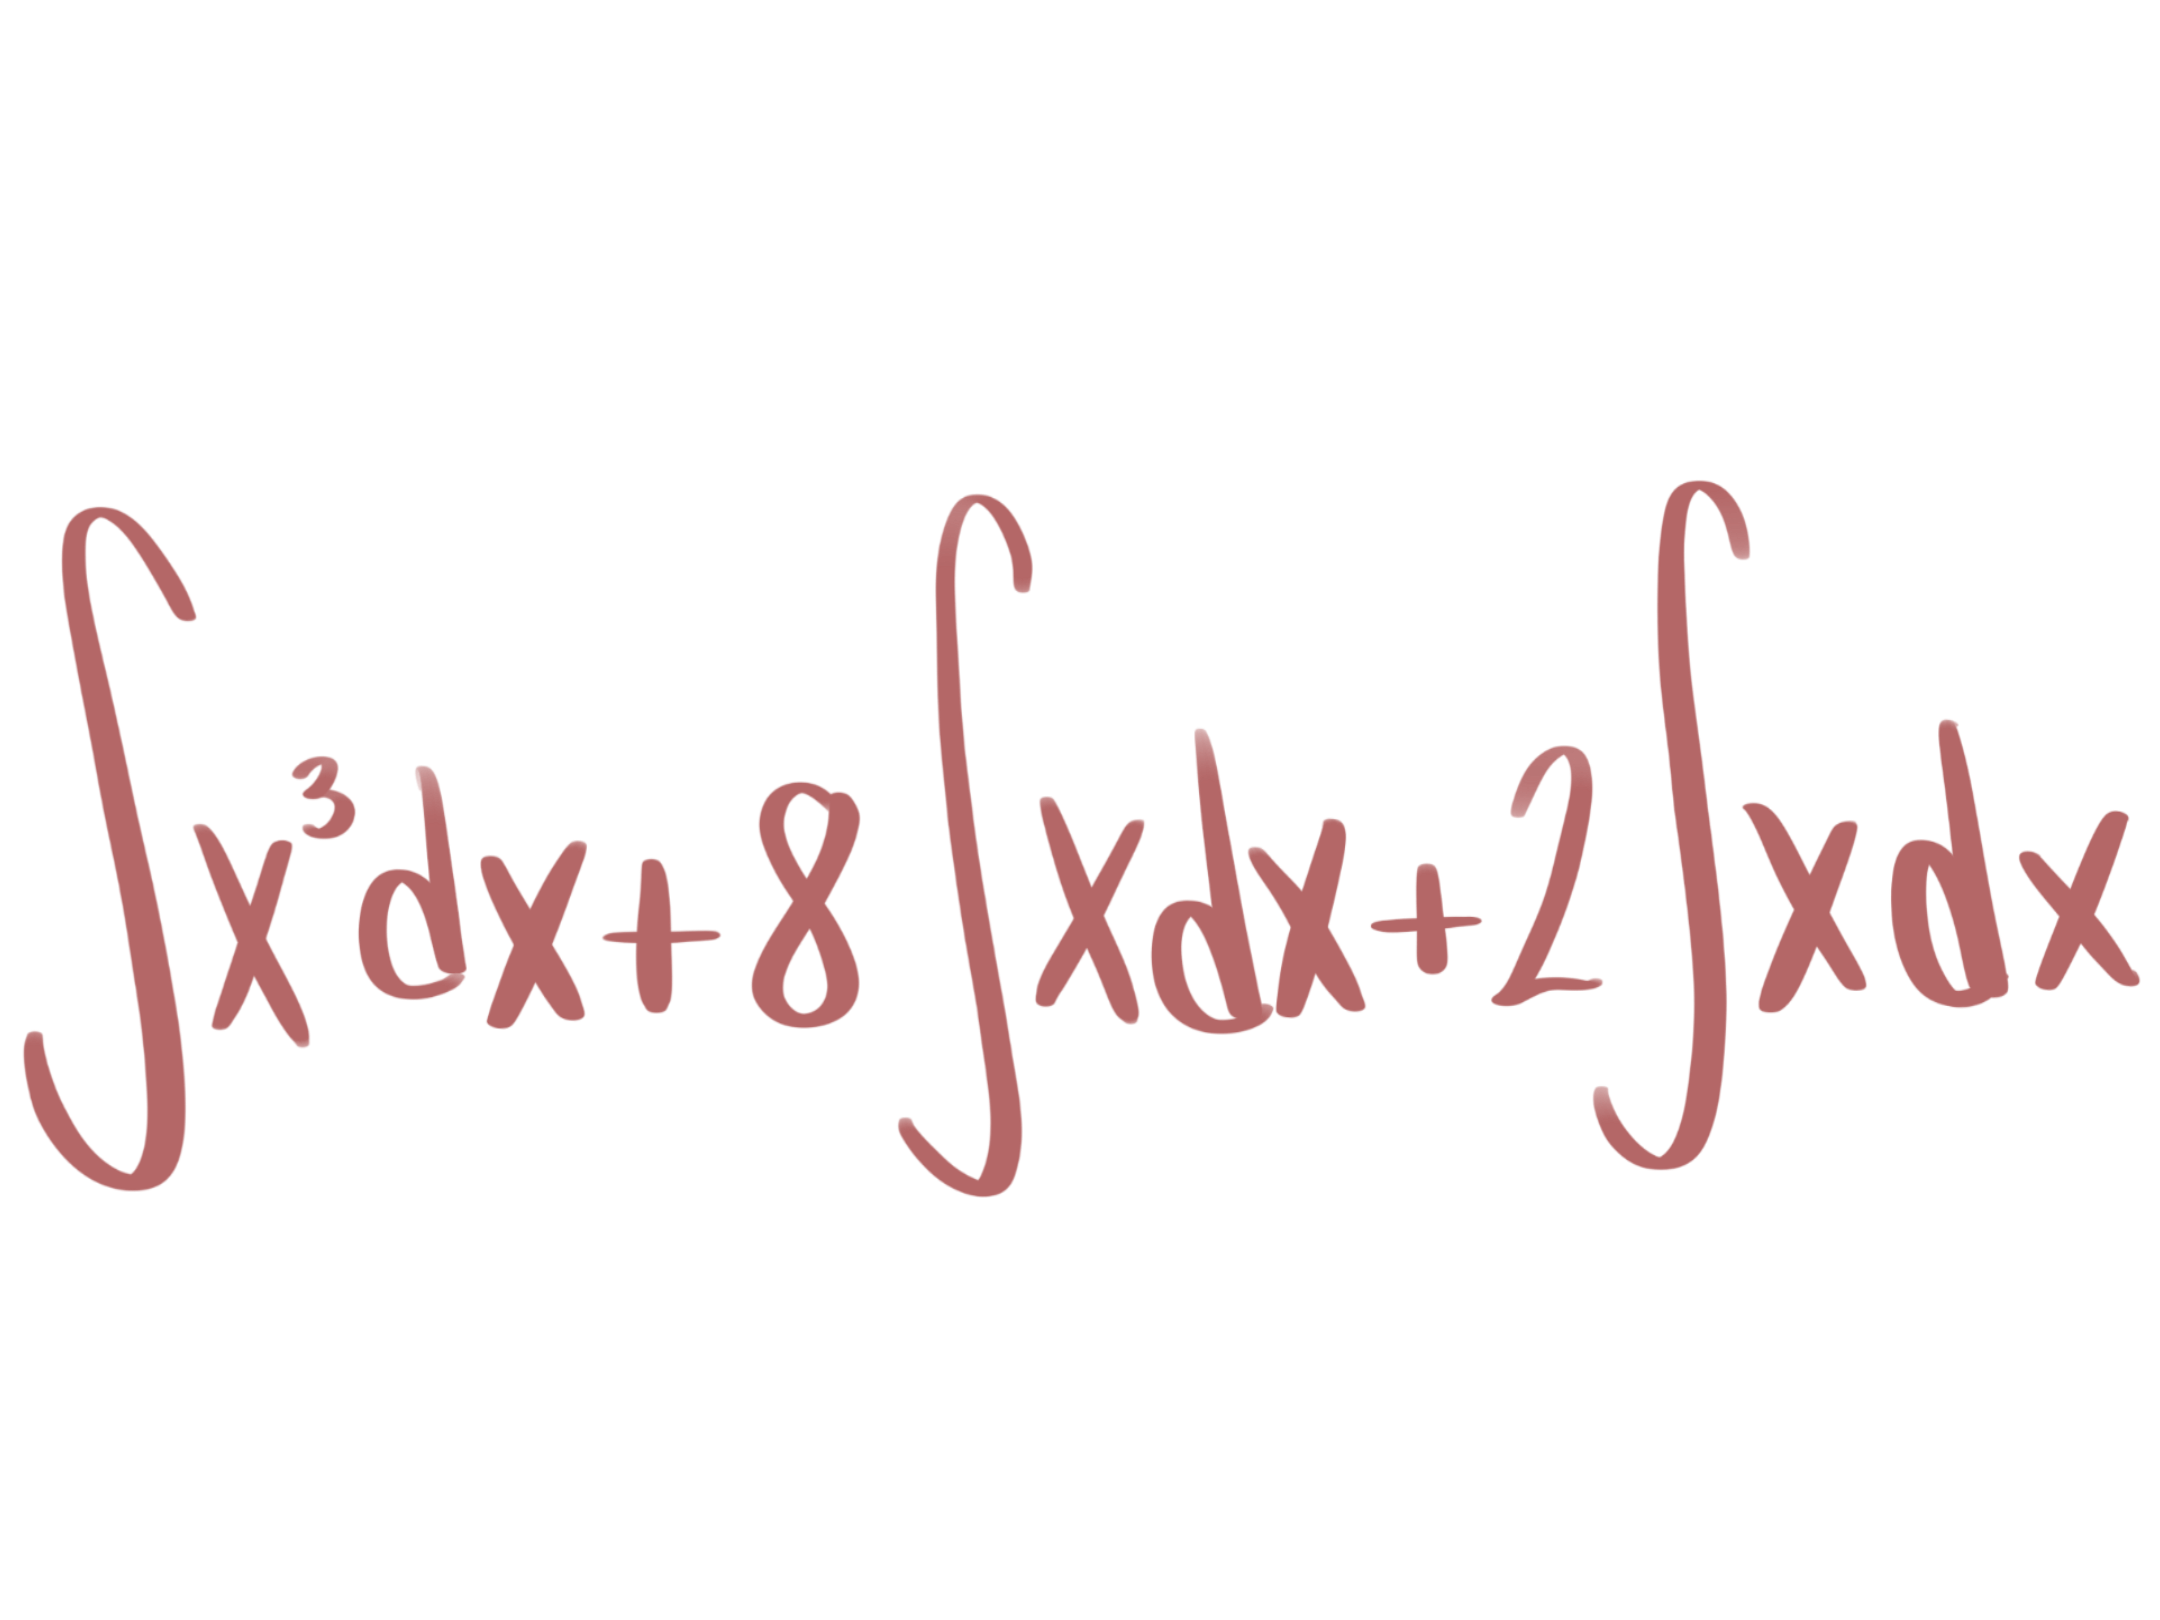 ∫x³dx+8∫xdx+2∫xdx